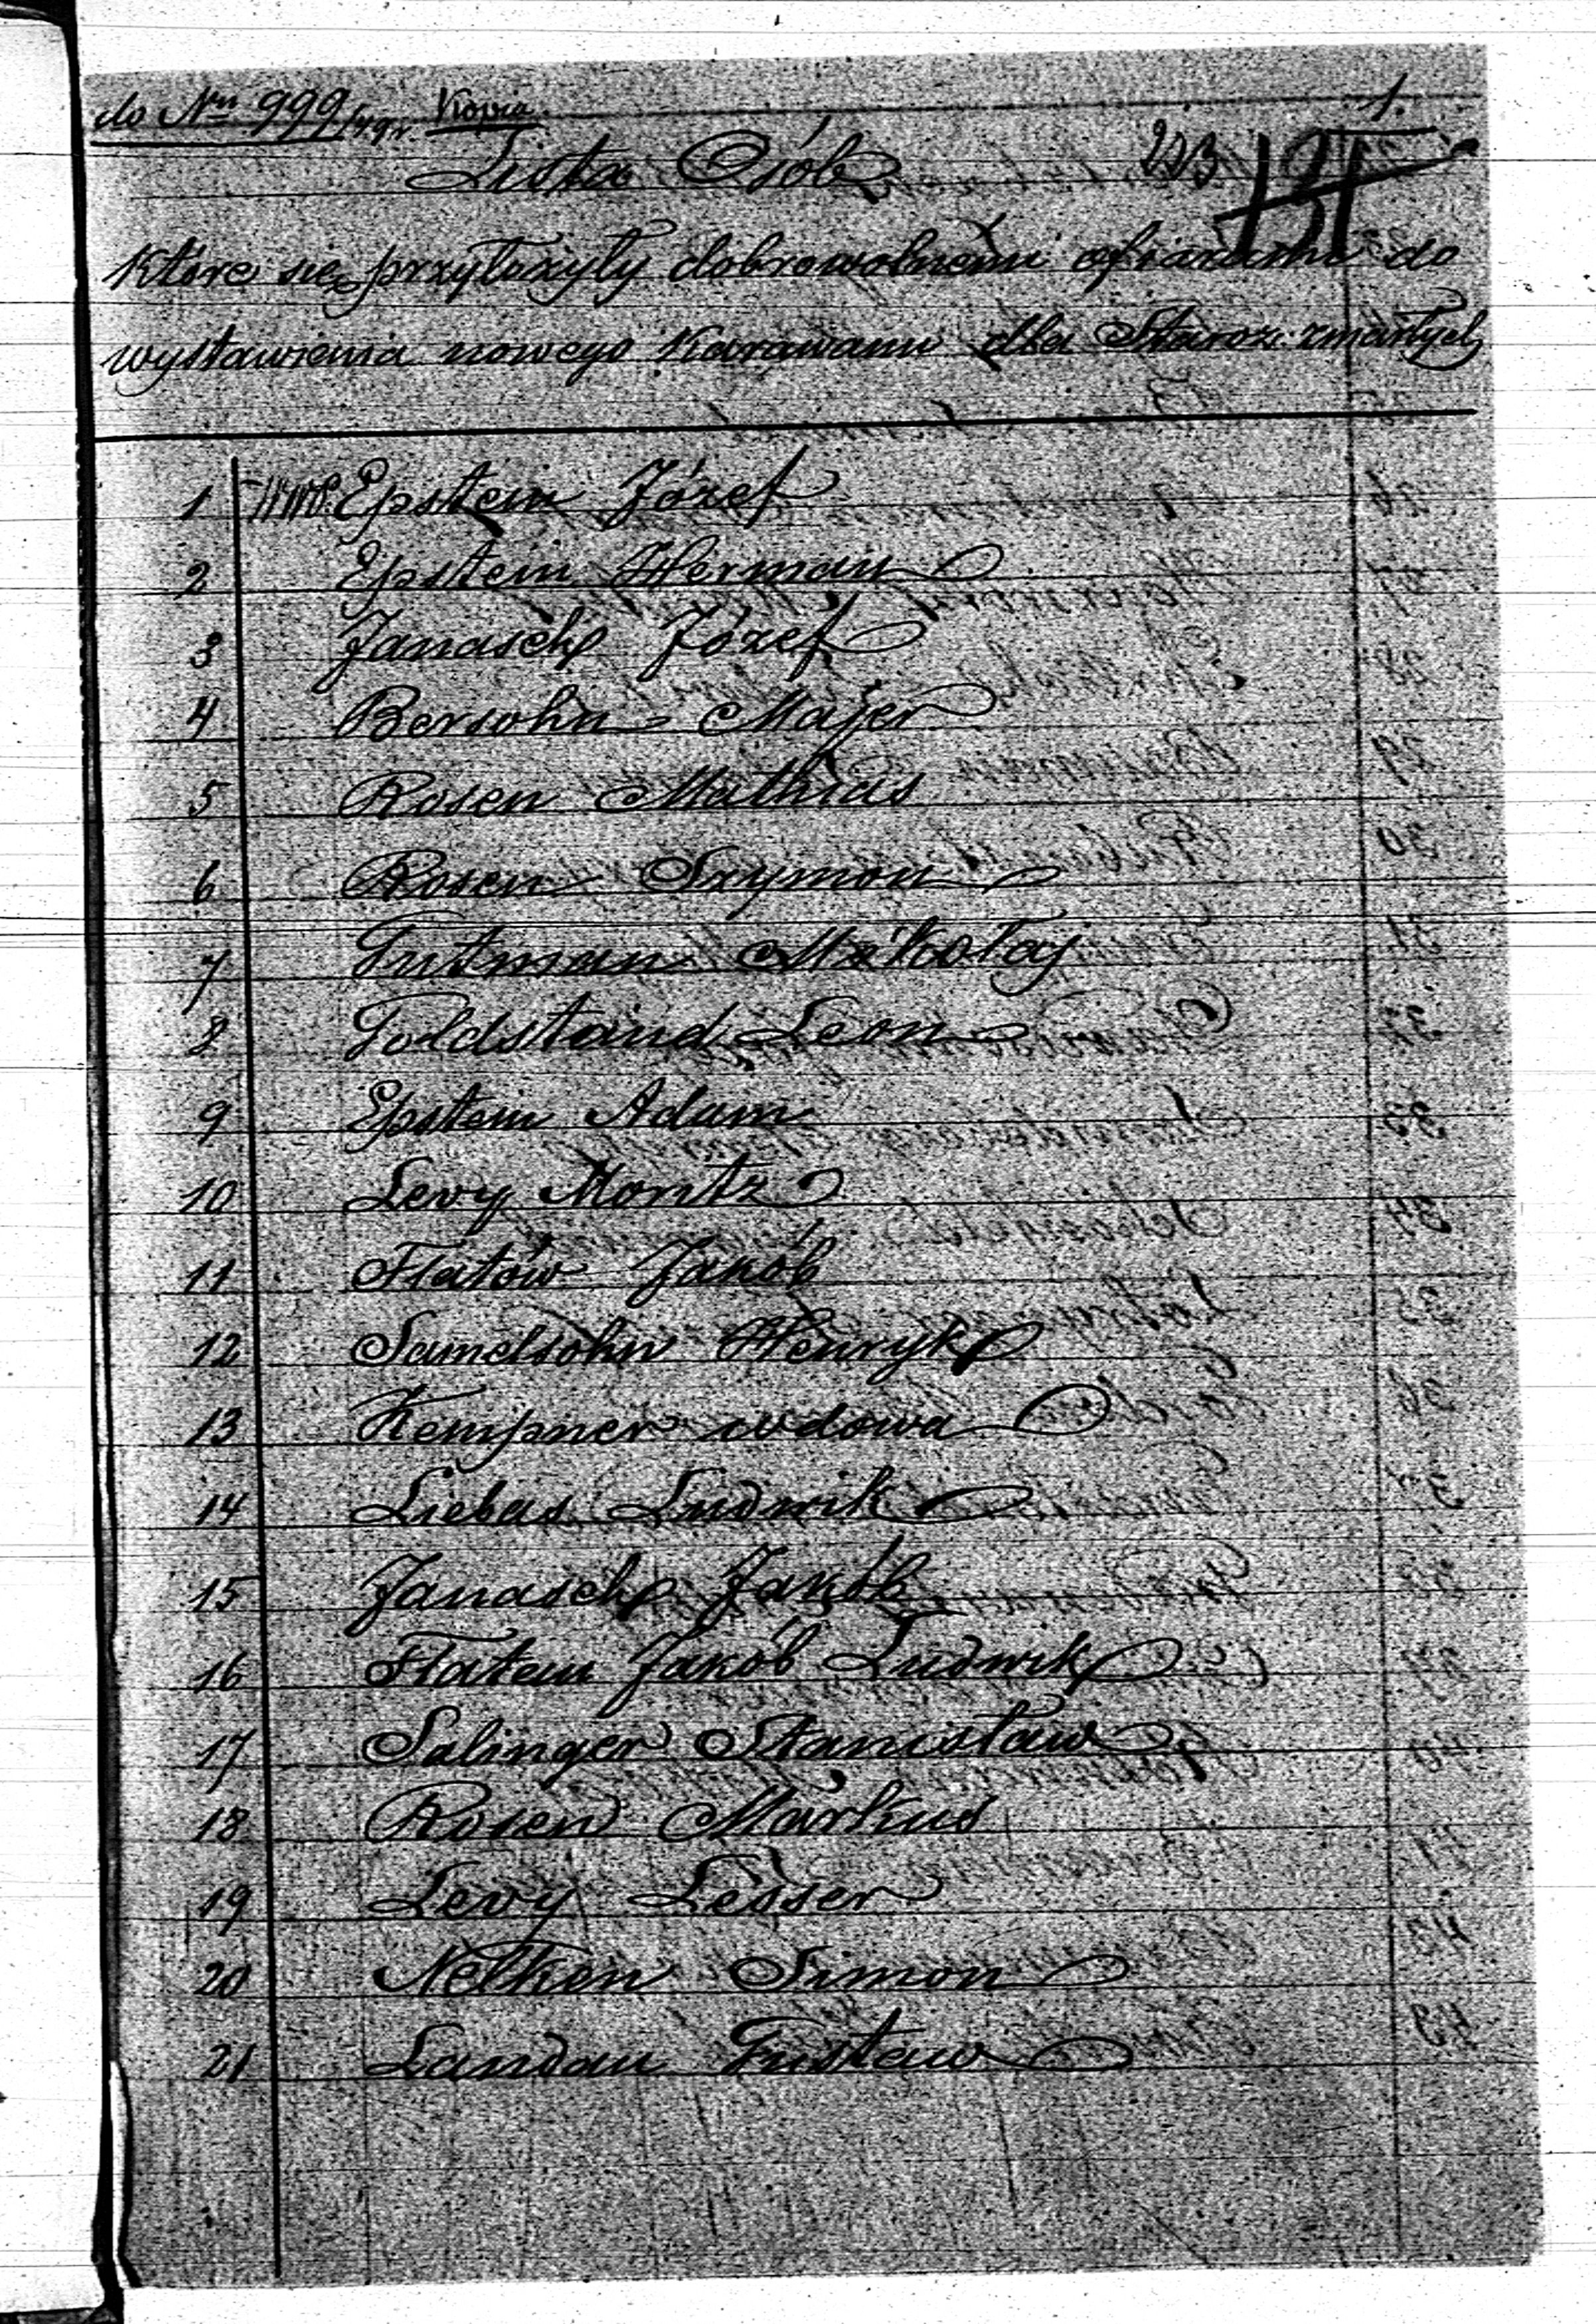 do Nru 999/49r. Kopia 1.
Lista Osób 223 131
Które się przyłożyły dobrowolnemi ofiarami do
wystawienia nowego Karawanu dla Staroz. zmarłych
1 WWP. Epstein Józef
2 Epstein Herman
3 Janasch Józef
4 Bersohn Majer
5 Rosen Mathias
6 Rosen Szymon
7 Gutman Mikołaj
8 Goldstand Leon
9 Epstein Adam
10 Levy Moritz
11 Flatów Jakób
12 Samelsohn Henryk
13 Kempner wdowa
14 Liebas Ludwik
15 Janasch Jakób
16 Flatau Jakób Ludwik
17 Salinger Stanisław
18 Rosen Markus
19 Levy Lesser
20 Nelken Simon
21 Landau Gustaw